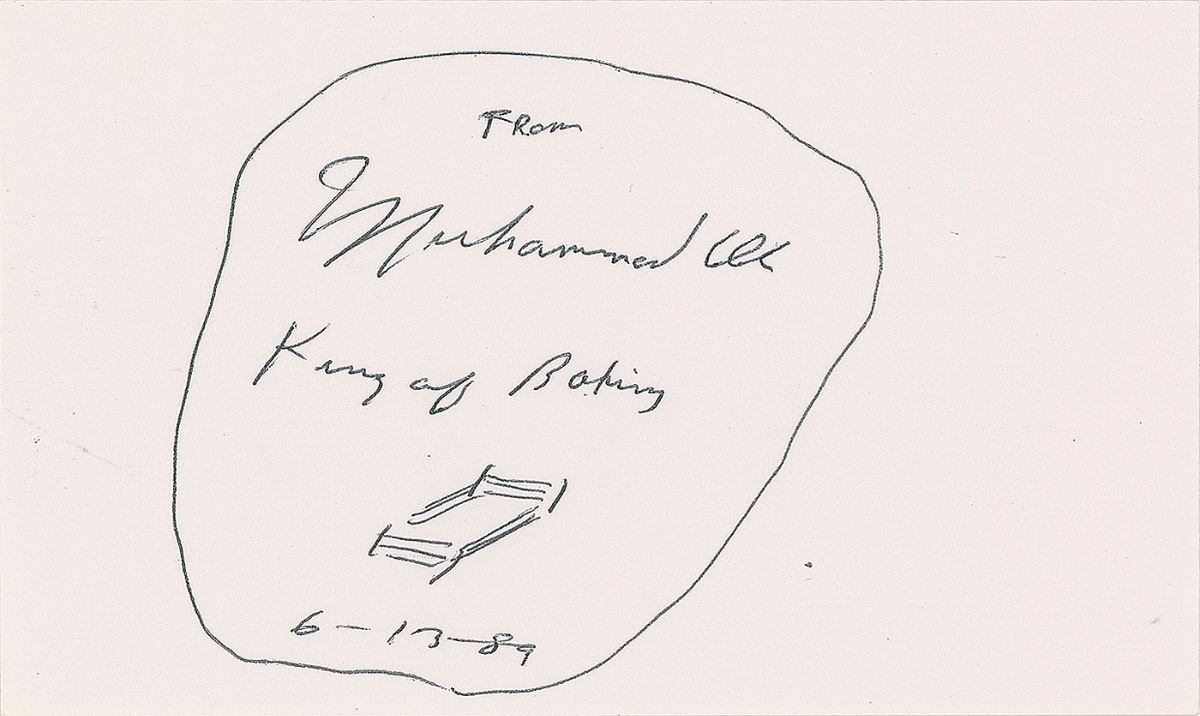 From
Muhammad Ali
King of Boxing
6-13-89